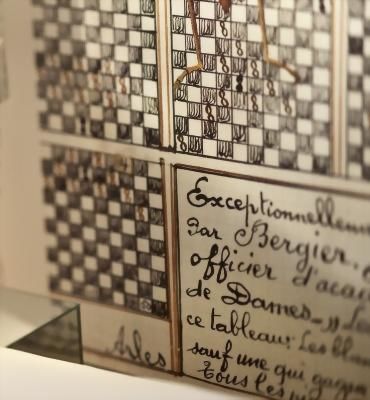 Exceptionnellem
Par Bergier.
officier d'acad
de Dames_
ce tableau: Les bla
sauf une qui gagne
Tous les
Arles